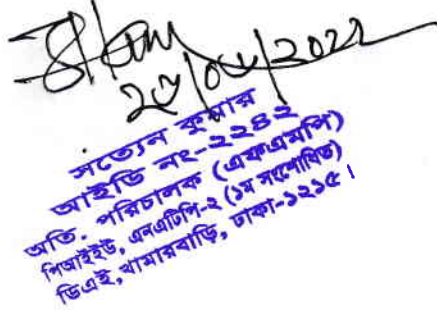 ২৩/০৫/2022
সত্যেন কুমার
আইডি নং-২২৪২
অতি. পরিচালক (এফএমপি)
পিআইইউ, এনএটিপি-২ (১ম সংশোধিত)
ডিএই, খামারবাড়ি, ঢাকা-১২১৫।